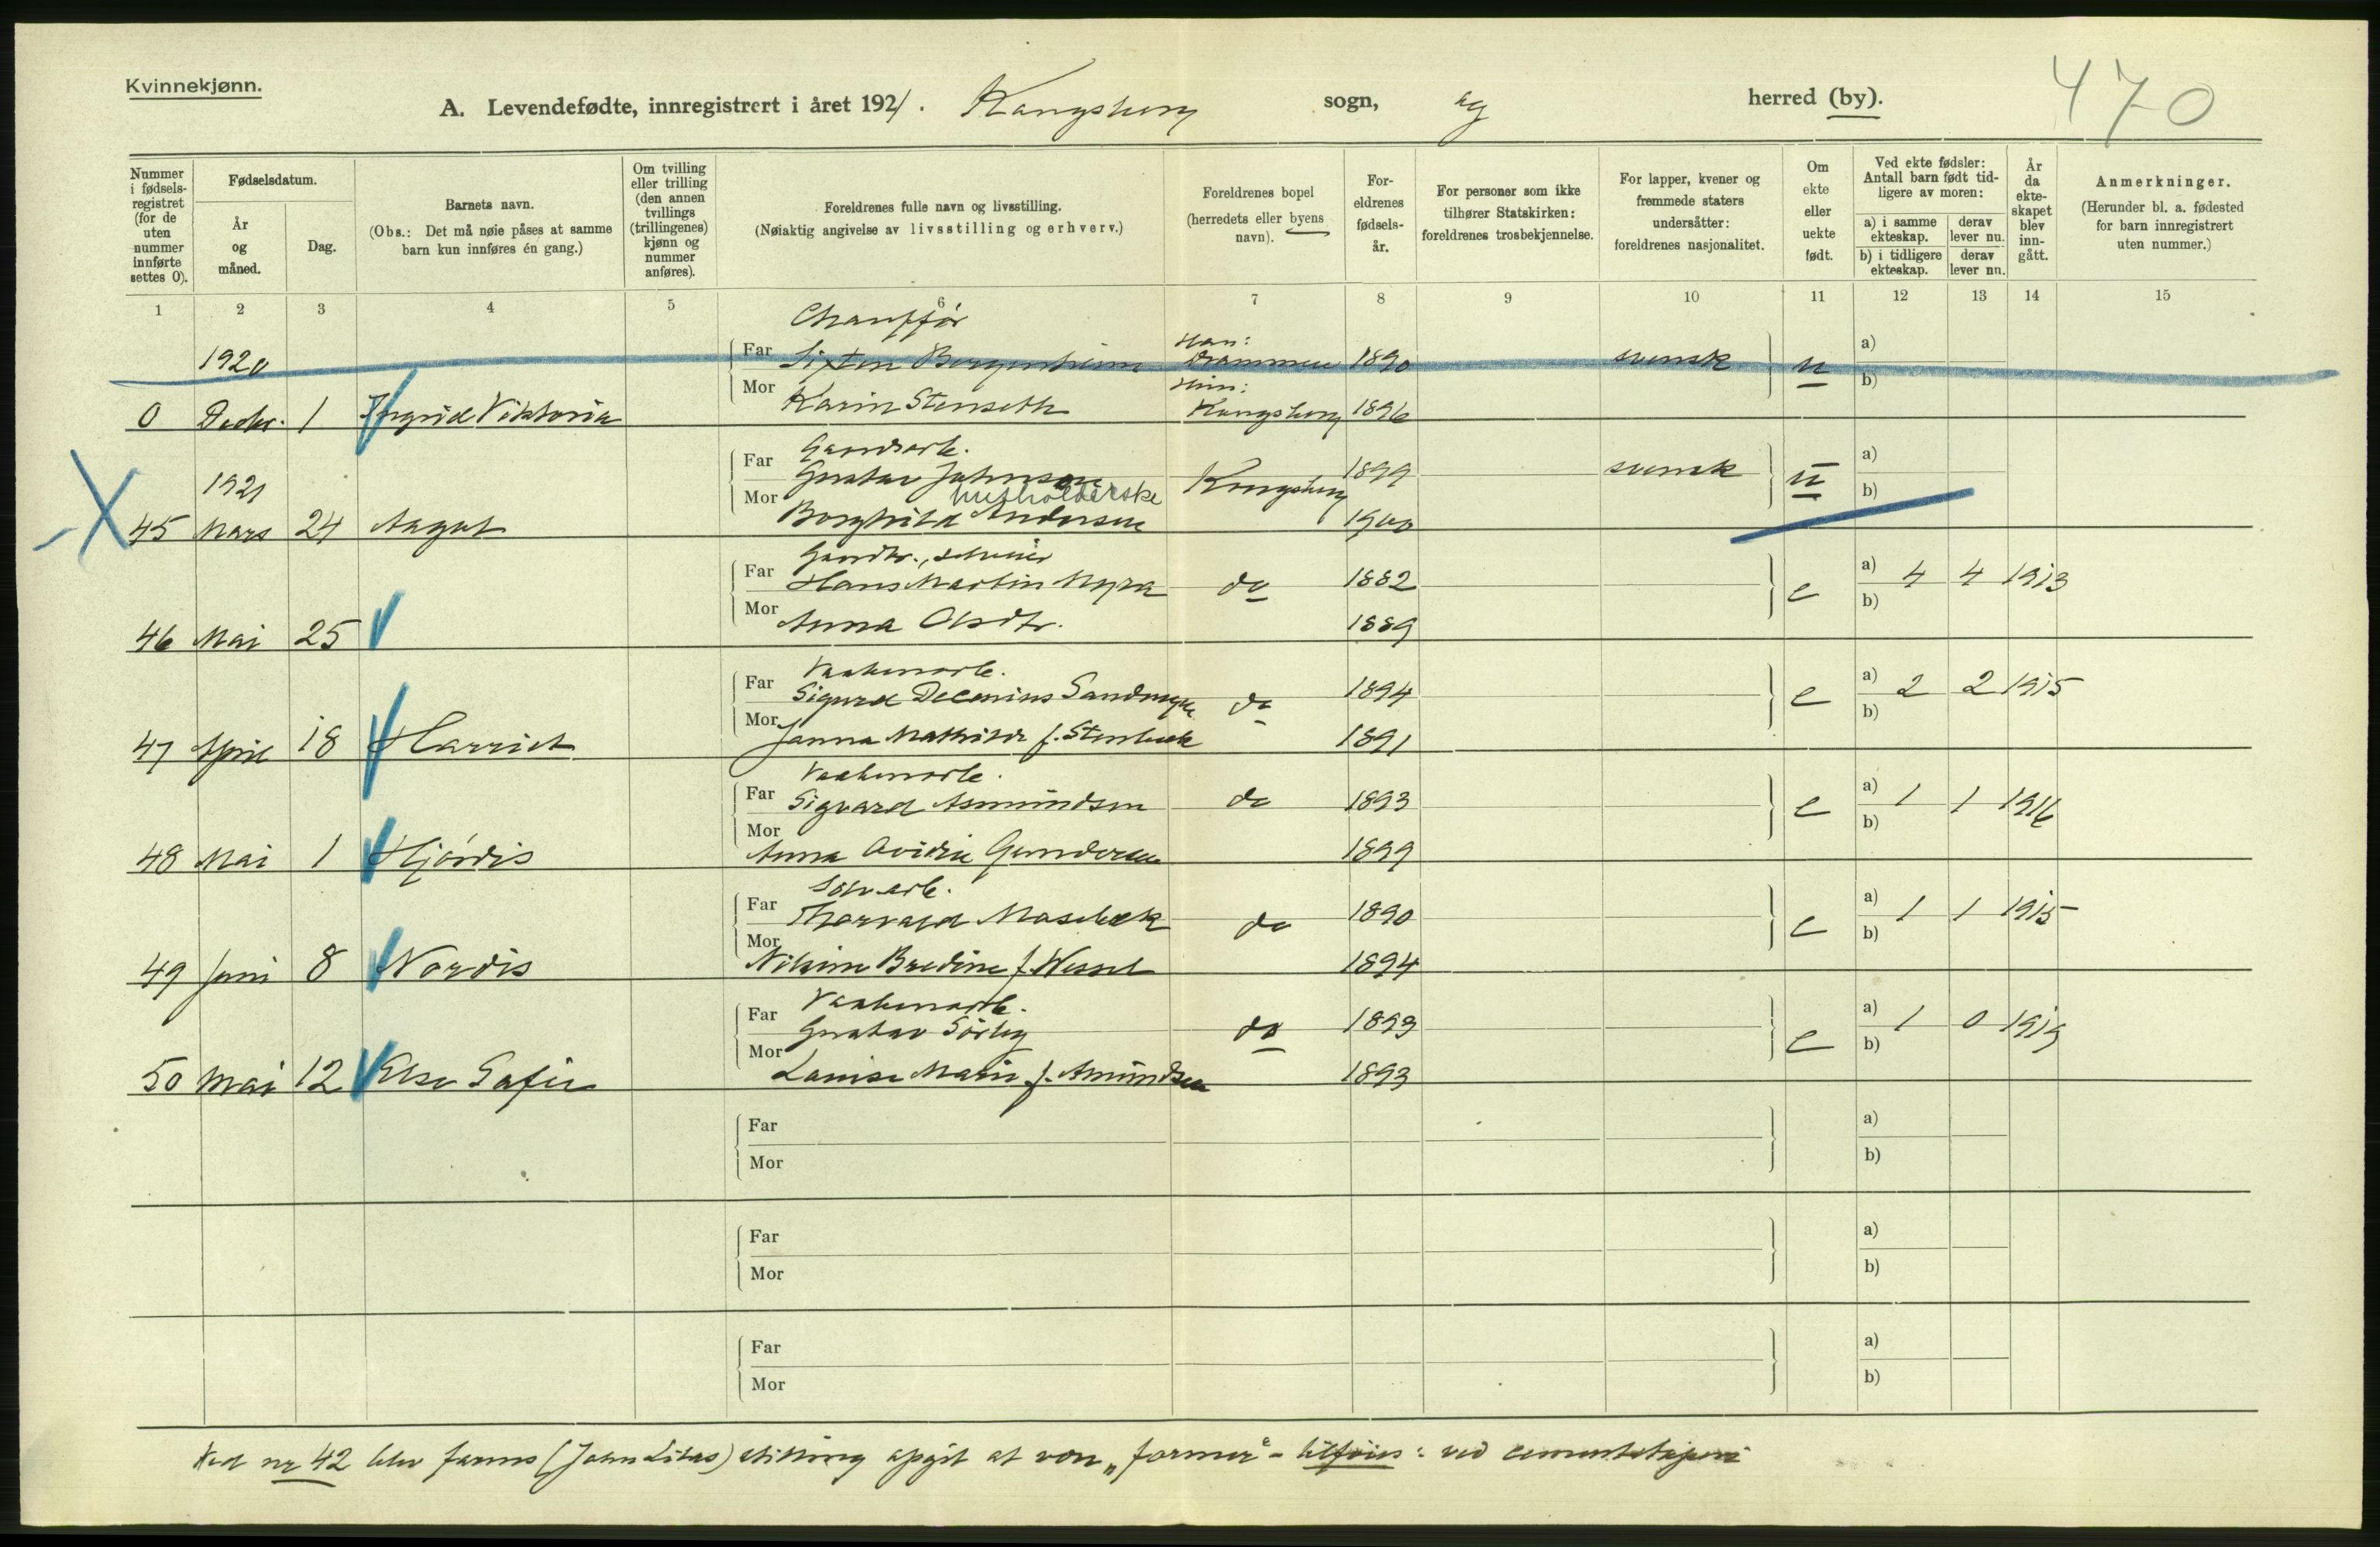 Kvinnekjønn.
470
A. Levendefødte, innregistrert i året 1921. Kongsberg sogn, og herred (by).
Nummer i fødselsregistret (for de uten nummer innførte settes 0).
Fødselsdatum.
År og måned.
Dag.
Barnets navn.
(Obs.: Det må nøie påses at samme barn kun innføres én gang.)
Om tvilling eller trilling (den annen tvillings (trillingenes) kjønn og nummer anføres).
Foreldrenes fulle navn og livsstilling.
(Nøiaktig angivelse av livsstilling og erhverv.)
Foreldrenes bopel (herredets eller byens navn).
Foreldrenes fødselsår.
For personer som ikke tilhører Statskirken: foreldrenes trosbekjennelse.
For lapper, kvener og fremmede staters undersåtter: foreldrenes nasjonalitet.
Om ekte eller uekte født.
Ved ekte fødsler: Antall barn født tidligere av moren:
a) i samme ekteskap. derav lever nu.
b) i tidligere ekteskap. derav lever nu.
År da ekteskapet blev inngått.
Anmerkninger.
(Herunder bl. a. fødested for barn innregistrert uten nummer.)
1 2 3 4 5 6 7 8 9 10 11 12 13 14 15
Chauffør
1920 Far Sixten Borgenheim Han: Drammen 1890 svensk u a)
b)
0 Decbr. 1 Ingrid Viktoria Mor Karin Stenseth Hun: Kongsberg 1896
Gaardsarb.
1921 Far Gustav Johnsen Kongsberg 1899 svensk u a)
husholderske b)
45 Mars 24 Aagot Mor Borghild Andersen 1900
Gaardbr., schmier
Far Hans Martin Myra do 1882 e a) 4 4 1913
b)
46 Mai 25 Mor Anna Olsdtr. 1889
Vaabenarb.
Far Sigurd Delenius Sandmyr do 1894 e a) 2 2 1915
b)
47 April 18 Harriet Mor Janna Mathilde f. Stenbæk 1891
Vaabenarb.
Far Sigvard Asmundsen do 1893 e a) 1 1 1916
b)
48 Mai 1 Hjørdis Mor Anna Ovidie Gundersen 1899
Sølvarb.
Far Thorvald Masebæk do 1890 e a) 1 1 1915
b)
49 Juni 8 Nordis Mor Nilsine Bredine f. Wessel 1894
Vaabenarb.
Far Gustav Sørby do 1893 e a) 1 0 1919
b)
50 Mai 12 Else Sofie Mor Lovise Marie f. Amundsen 1893
Far a)
Mor b)
Far a)
Mor b)
Far a)
Mor b)
Ved nr 42 blev farens (John Litas) stilling opgit at være „former“ - tilføies: ved cementstøperi